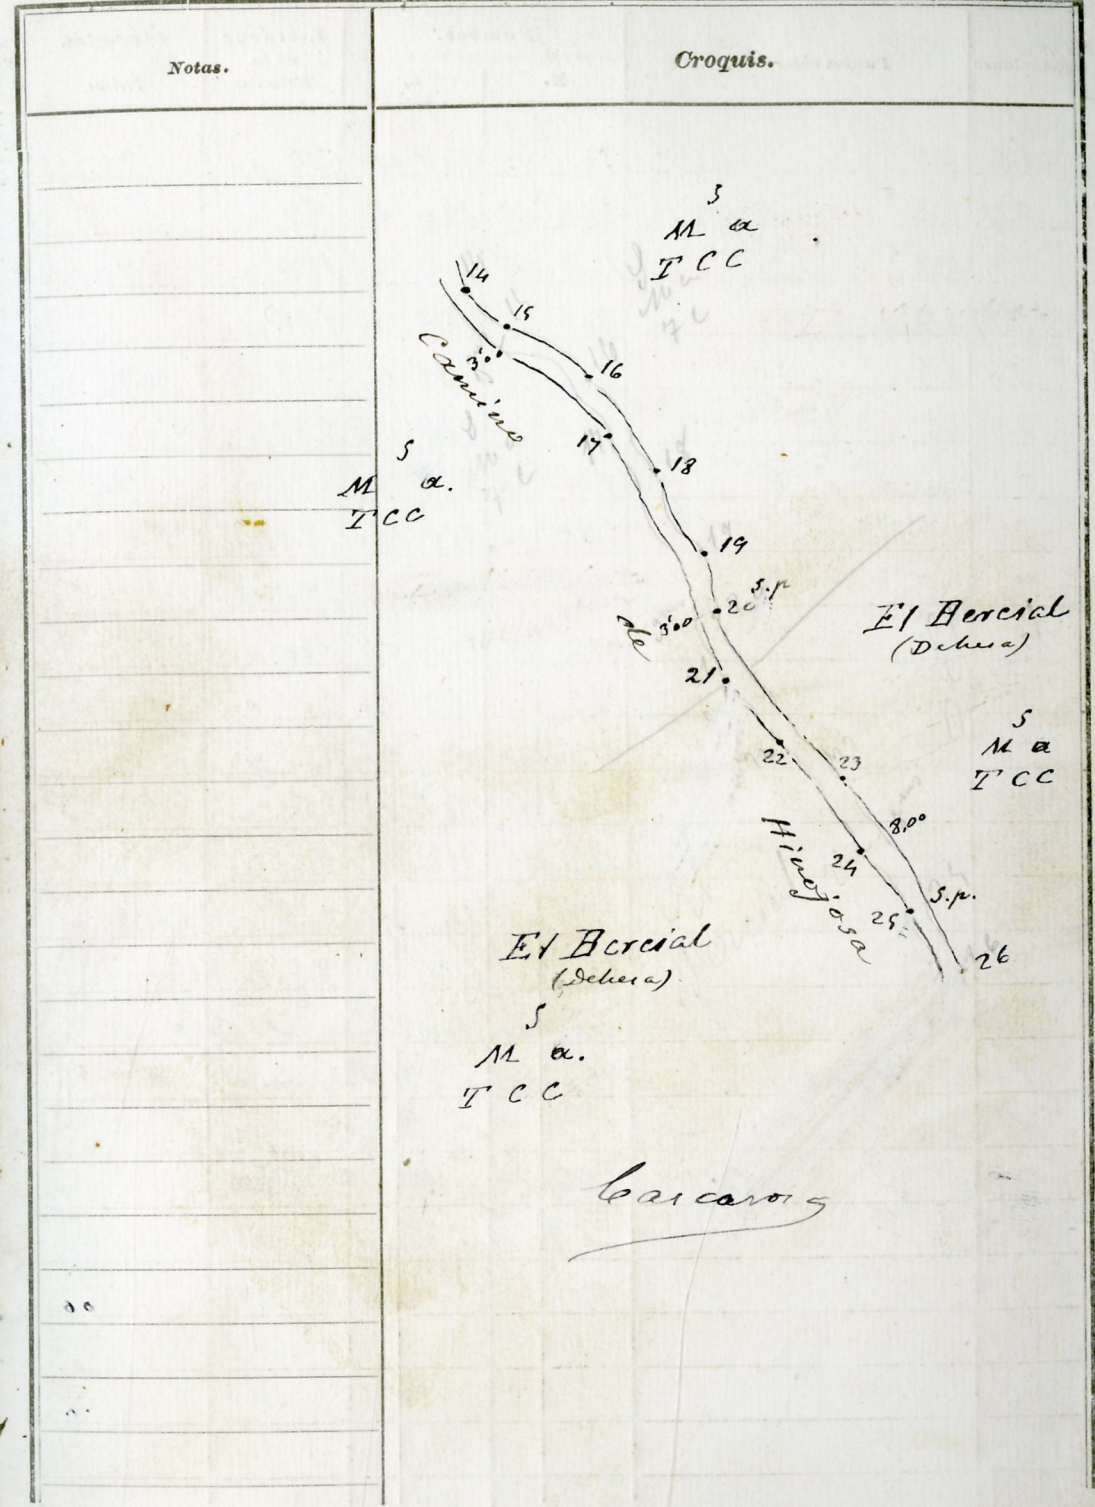 Notas.
Croquis.
S
M a
T C C
14
15
3'00
Camino
16
17
18
S
M a.
T C C
19
20 S.p
de
3'00
21
El Bercial
(Dehesa)
22
23
S
M a
T C C
8,00
Hinojosa
24
S.p.
25
26
El Bercial
(Dehesa)
S
M a.
T C C